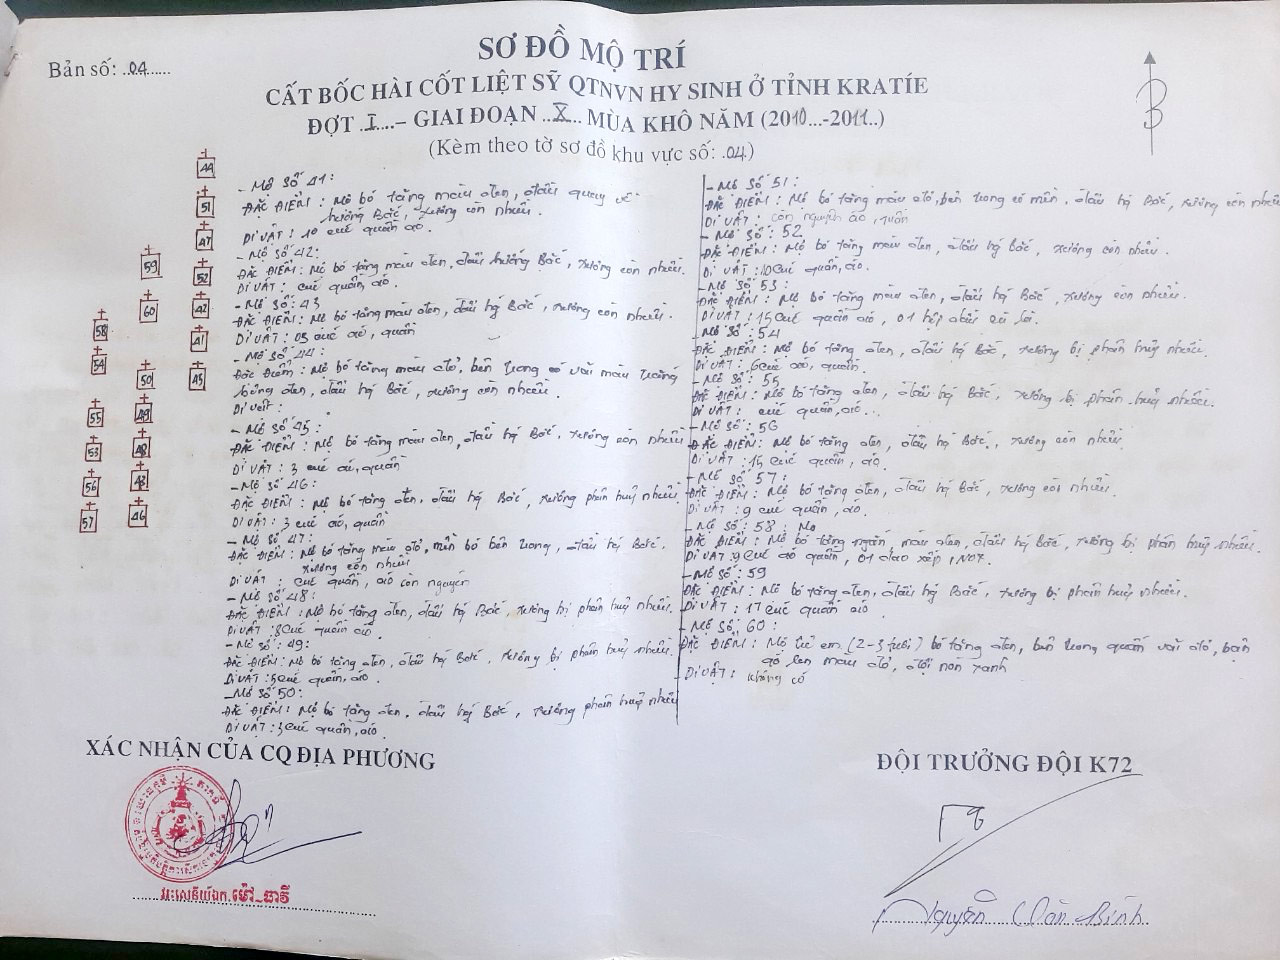 Bản số: 04
SƠ ĐỒ MỘ TRÍ
CẤT BỐC HÀI CỐT LIỆT SỸ QTNVN HY SINH Ở TỈNH KRATÍE
ĐỢT I - GIAI ĐOẠN X MÙA KHÔ NĂM (2010...-2011..)
(Kèm theo tờ sơ đồ khu vực số: 04)
B
44
51
47
59
52
60
42
58
41
54
50
45
55
49
53
48
56
43
57
46
- Mộ số 41:
ĐẶC ĐIỂM: Mộ bó tăng màu đen, đầu quay về
hướng Bắc, xương còn nhiều.
DI VẬT: 10 cúc quần áo.
- Mộ số 42:
ĐẶC ĐIỂM: Mộ bó tăng màu đen, đầu hướng Bắc, xương còn nhiều.
DI VẬT: cúc quần, áo.
- Mộ số: 43
ĐẶC ĐIỂM: Mộ bó tăng màu đen, đầu hg Bắc, xương còn nhiều.
DI VẬT: 05 cúc áo, quần
- Mộ số: 44:
Đặc Điểm: Mộ bó tăng màu đỏ, bên trong có vải màu trắng
bông đen, đầu hg Bắc, xương còn nhiều.
Di vật:
- Mộ số 45:
ĐẶC ĐIỂM: Mộ bó tăng màu đen, đầu hg Bắc, xương còn nhiều
DI VẬT: 3 cúc áo, quần
- Mộ số 46:
ĐẶC ĐIỂM: Mộ bó tăng đen, đầu hg Bắc, xương phân huỷ nhiều
DI VẬT: 3 cúc áo, quần
- Mộ số: 47:
ĐẶC ĐIỂM: Mộ bó tăng màu đỏ, mền bó bên trong, đầu hg Bắc.
xương còn nhiều
DI VẬT: cúc quần, áo còn nguyên
- Mộ số 48:
ĐẶC ĐIỂM: Mộ bó tăng đen, đầu hg Bắc, xương bị phân huỷ nhiều.
DI VẬT: 8 cúc quần áo.
- Mộ số: 49:
ĐẶC ĐIỂM: Mộ bó tăng đen, đầu hg Bắc, xương bị phân huỷ nhiều.
DI VẬT: 5 cúc quần, áo.
- Mộ số 50:
ĐẶC ĐIỂM: Mộ bó tăng đen, đầu hg Bắc, xương phân huỷ nhiều
DI VẬT: 3 cúc quần, áo
- Mộ số 51:
ĐẶC ĐIỂM: Mộ bó tăng màu đỏ, bên trong có mền, đầu hg Bắc, xương còn nhiều
DI VẬT: còn nguyên áo, quần
- Mộ số: 52
ĐẶC ĐIỂM: Mộ bó tăng màu đen, đầu hg Bắc, xương còn nhiều.
DI VẬT: 10 cúc quần, áo.
- Mộ số 53:
ĐẶC ĐIỂM: Mộ bó tăng màu đen, đầu hg Bắc, xương còn nhiều.
DI VẬT: 15 cúc quần áo, 01 hộp dầu
- Mộ số: 54
ĐẶC ĐIỂM: Mộ bó tăng đen, đầu hg Bắc, xương bị phân huỷ nhiều.
DI VẬT: 6 cúc áo, quần.
- Mộ số: 55
ĐẶC ĐIỂM: Mộ bó tăng đen, đầu hg Bắc, xương bị phân huỷ nhiều.
DI VẬT: cúc quần, áo...
- Mộ số: 56
ĐẶC ĐIỂM: Mộ bó tăng đen, đầu hg Bắc, xương còn nhiều.
DI VẬT: 15 cúc quần, áo.
- Mộ số 57:
ĐẶC ĐIỂM: Mộ bó tăng đen, đầu hg Bắc, xương còn nhiều.
DI VẬT: 9 cúc quần, áo.
- Mộ số: 58: Mo
ĐẶC ĐIỂM: Mộ bó tăng ngắn, màu đen, đầu hg Bắc, xương bị phân huỷ nhiều.
DI VẬT: 9 cúc áo quần, 01 dao xếp INOX.
- Mộ số: 59
ĐẶC ĐIỂM: Mộ bó tăng đen, đầu hg Bắc, xương bị phân huỷ nhiều.
DI VẬT: 17 cúc quần áo
- Mộ số, 60:
ĐẶC ĐIỂM: Mộ trẻ em (2-3 tuổi) bó tăng đen, bên trong quấn vải đỏ, bận
áo len màu đỏ, đội nón xanh
DI VẬT: không có
XÁC NHẬN CỦA CQ ĐỊA PHƯƠNG
ĐỘI TRƯỞNG ĐỘI K72
Nguyễn Văn Bính